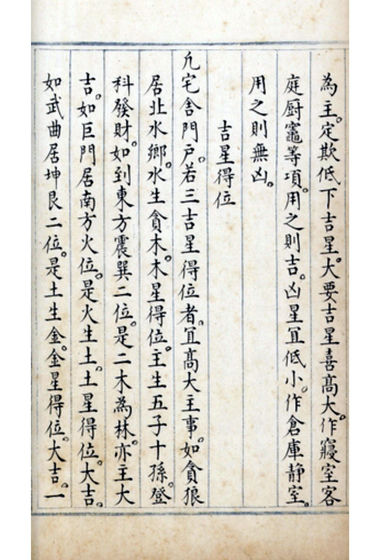 為主。定欺低下吉星。大要吉星喜高大。作寢室客
庭厨竈等項。用之則吉。凶星冝低小。作倉庫静室。
用之則無凶。
吉星得位
凢宅舍門户。若三吉星得位者。冝高大主事。如貪狼
居北水鄉。水生貪木。木星得位。主生五子十孫。登
科發財。如到東方震巽二位。是二木為林。亦主大
吉。如巨門居南方火位。是火生土。土星得位。大吉。
如武曲居坤艮二位。是土生金。金星得位。大吉。一